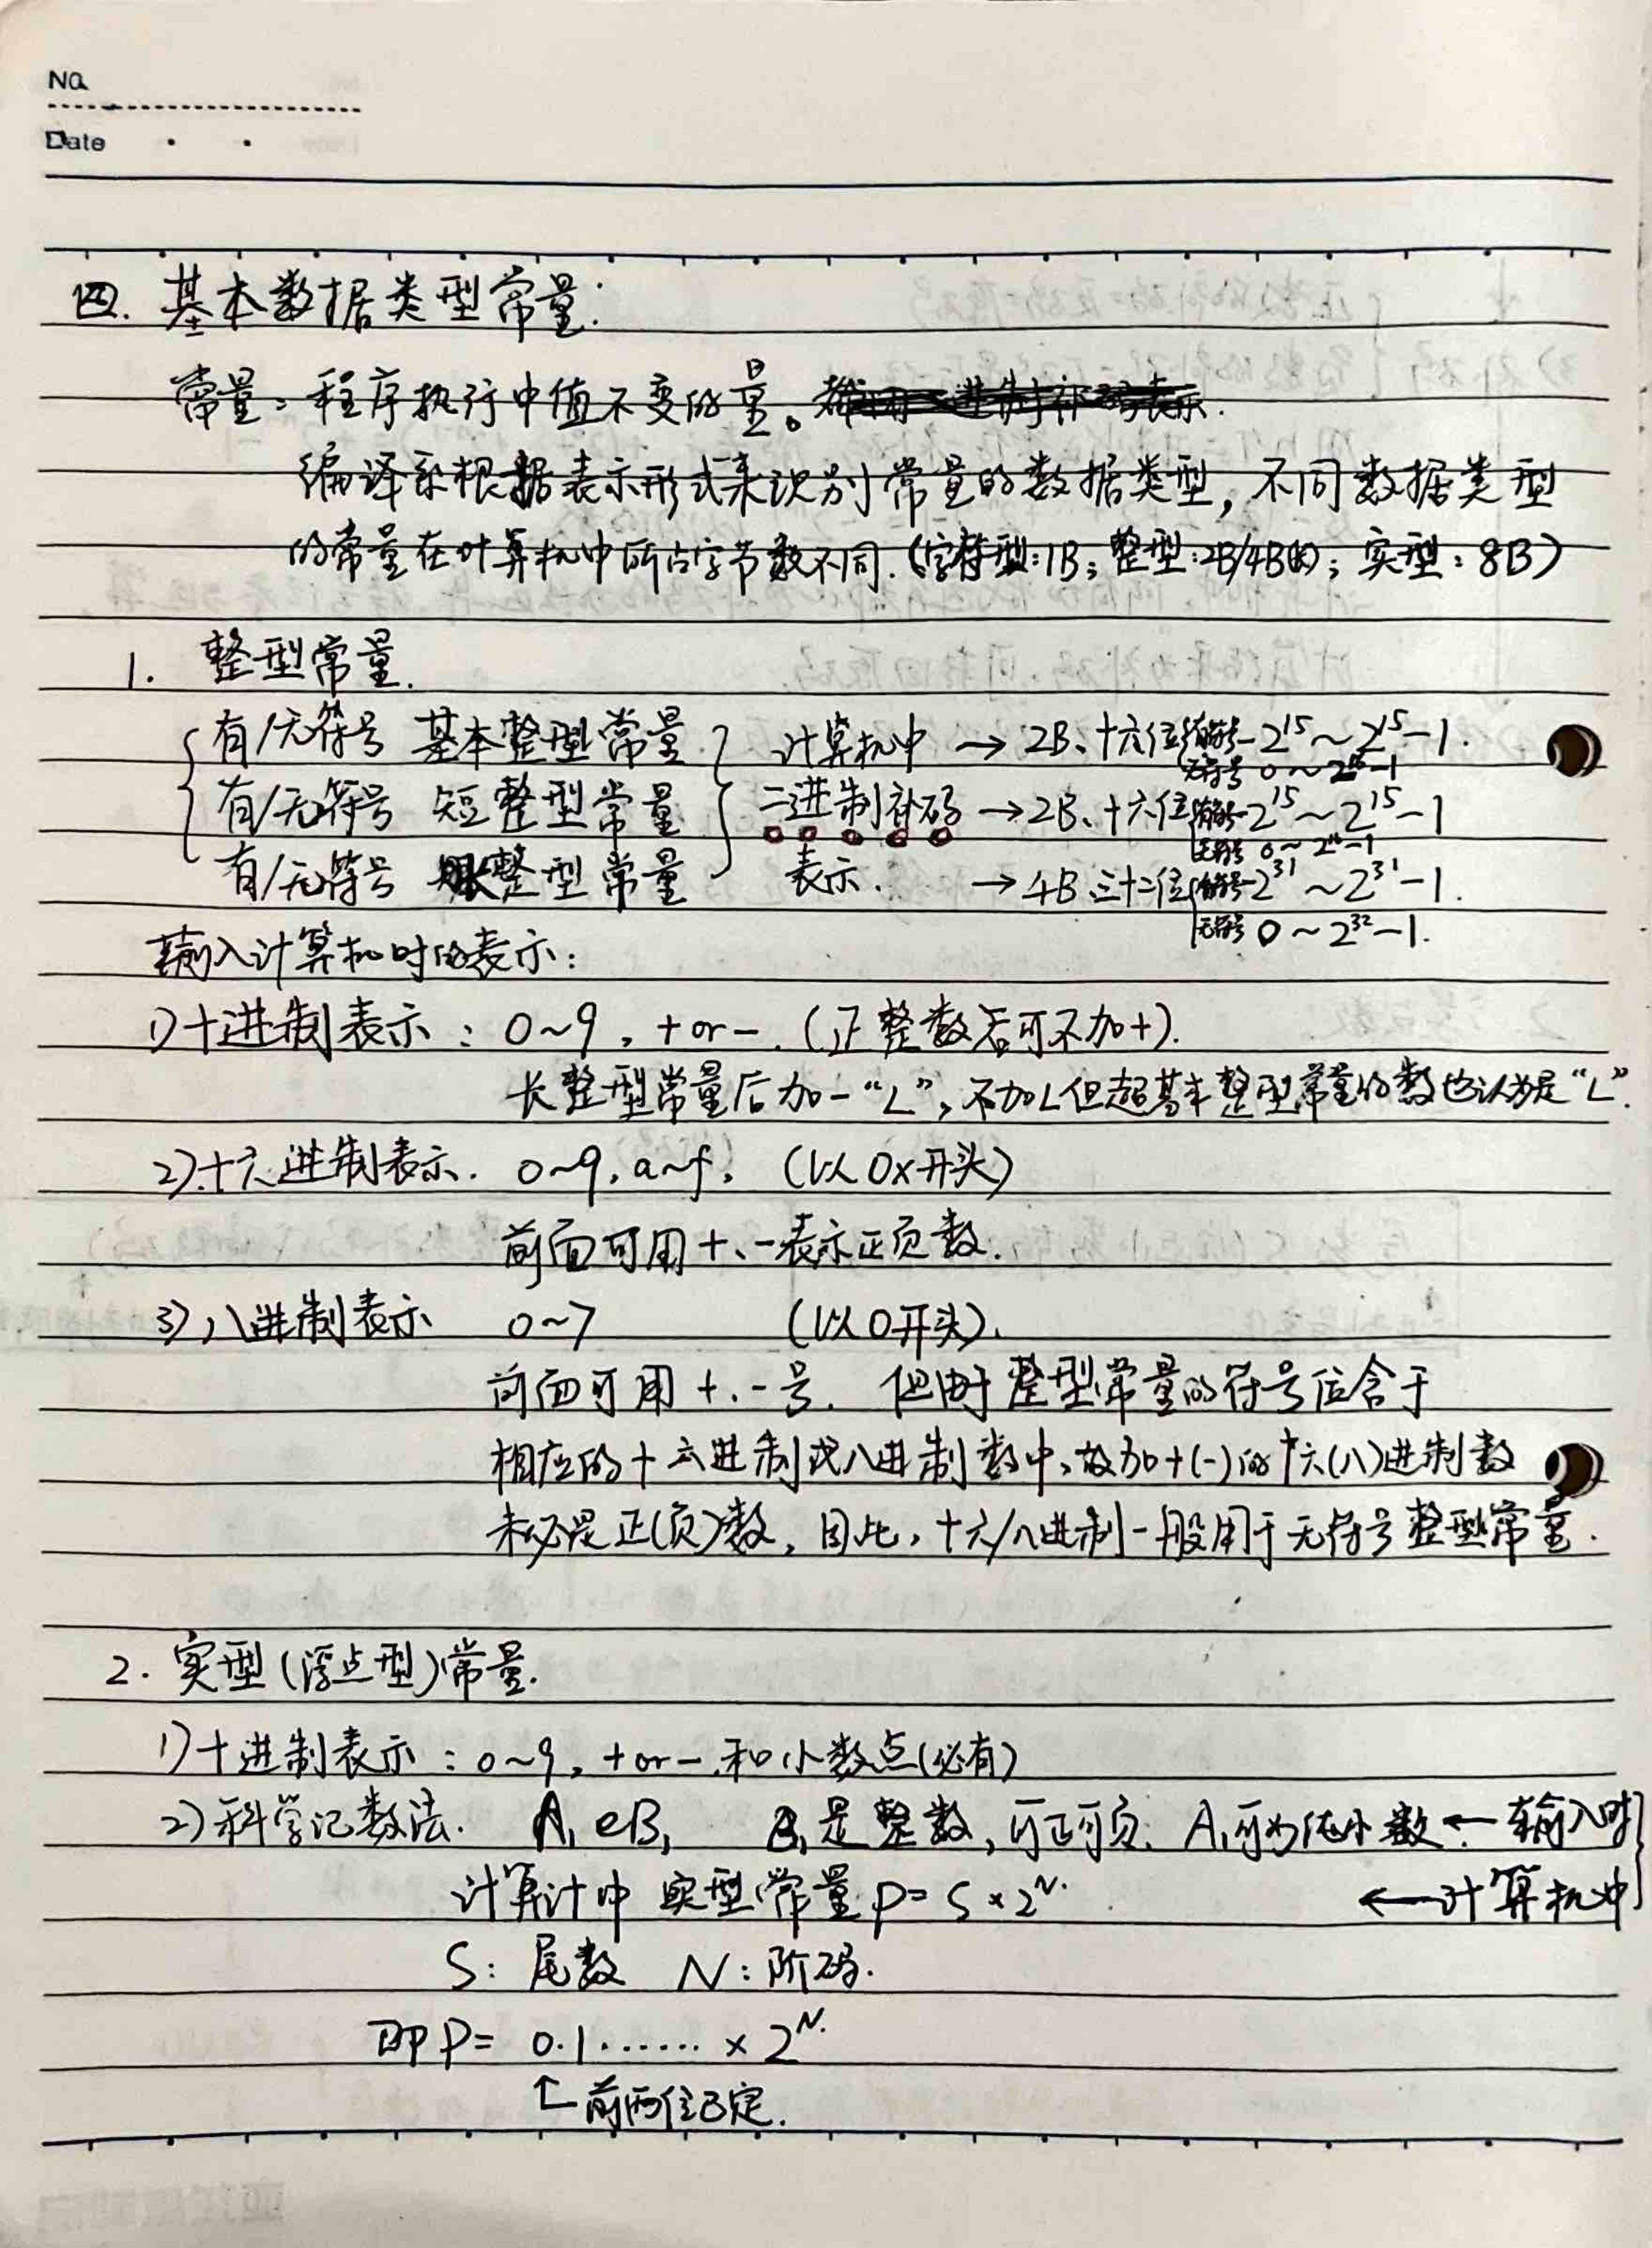 No.
Date
四. 基本数据类型常量:
常量: 程序执行中值不变的量。
编译系根据表示形式来识别常量的数据类型, 不同数据类型
的常量在计算机中所占字节数不同.(字符型:1B; 整型:2B/4B(长); 实型: 8B)
1. 整型常量.
有/无符号 基本整型常量 计算机中 → 2B、十六位 有符号-2^15~2^15-1.
无符号 0~2^16-1
有/无符号 短整型常量 二进制补码 → 2B、十六位 有符号-2^15~2^15-1
无符号 0~2^16-1
有/无符号 长整型常量 表示. → 4B 三十二位 有符号-2^31~2^31-1.
无符号 0~2^32-1.
输入计算机时的表示:
1)十进制表示: 0~9, +or-. (正整数后可不加+).
长整型常量后加一"L", 不加L但超基本整型常量的数也认为是"L".
2)十六进制表示. 0~9, a~f, (以0x开头)
前面可用+、-表示正负数.
3)八进制表示 0~7 (以0开头).
前面可用+、-号. 但由于整型常量的符号位含于
相应的十六进制或八进制数中,故加+(-)的十六(八)进制数
未必是正(负)数, 因此, 十六/八进制一般用于无符号整型常量.
2. 实型(浮点型)常量.
1)十进制表示: 0~9, +or-, 和小数点(必有)
2)科学记数法. A, eB, B, 是整数, 可正可负. A,可为纯小数 ← 输入时
计算计中 实型常量 P=S×2^N. ← 计算机中
S: 尾数 N: 阶码.
即P= 0.1...... × 2^N.
↑前两位已定.